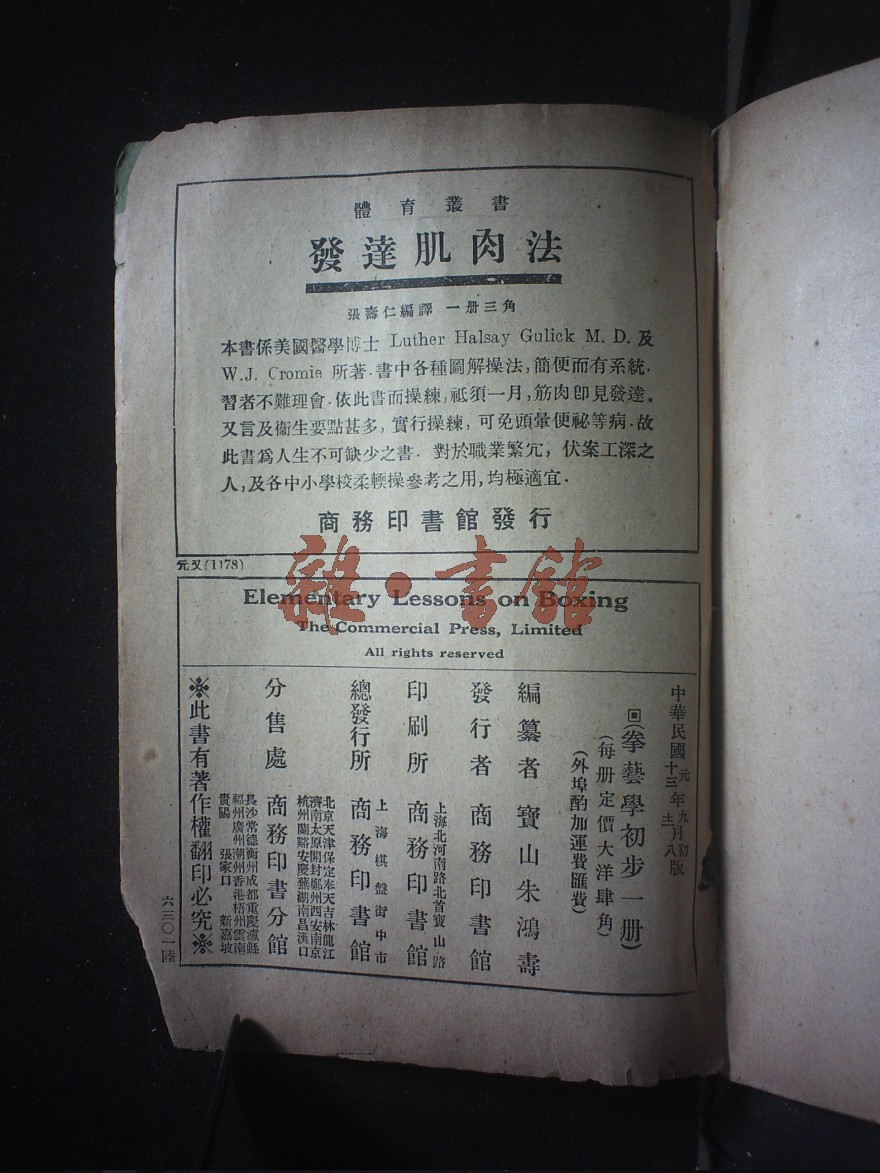 體育叢書
發達肌肉法
張壽仁編譯 一册三角
本書係美國醫學博士 Luther Halsay Gulick M. D. 及
W.J. Cromie 所著.書中各種圖解操法,簡便而有系統.
習者不難理會.依此書而操練,祗須一月,筋肉卽見發達.
又言及衞生要點甚多,實行操練,可免頭暈便祕等病.故
此書爲人生不可缺少之書.對於職業繁冗,伏案工深之
人,及各中小學校柔輭操參考之用,均極適宜.
商務印書館發行
元又(1178)
雜·書館
Elementary Lessons on Boxing
The Commercial Press, Limited
All rights reserved
中華民國元年九月初版
十三 八版
回(拳藝學初步一册)
(每册定價大洋肆角)
(外埠酌加運費匯費)
編纂者 寶山朱鴻壽
發行者 商務印書館
印刷所 上海北河南路北首寶山路 商務印書館
總發行所 上海棋盤街中市 商務印書館
分售處 商務印書分館
北京天津保定奉天吉林龍江
濟南太原開封鄭州西安南京
杭州蘭谿安慶蕪湖南昌漢口
長沙常德衡州成都重慶瀘縣
福州廣州潮州香港梧州雲南
貴陽 張家口 新嘉坡
※此書有著作權翻印必究※
六三〇一陸